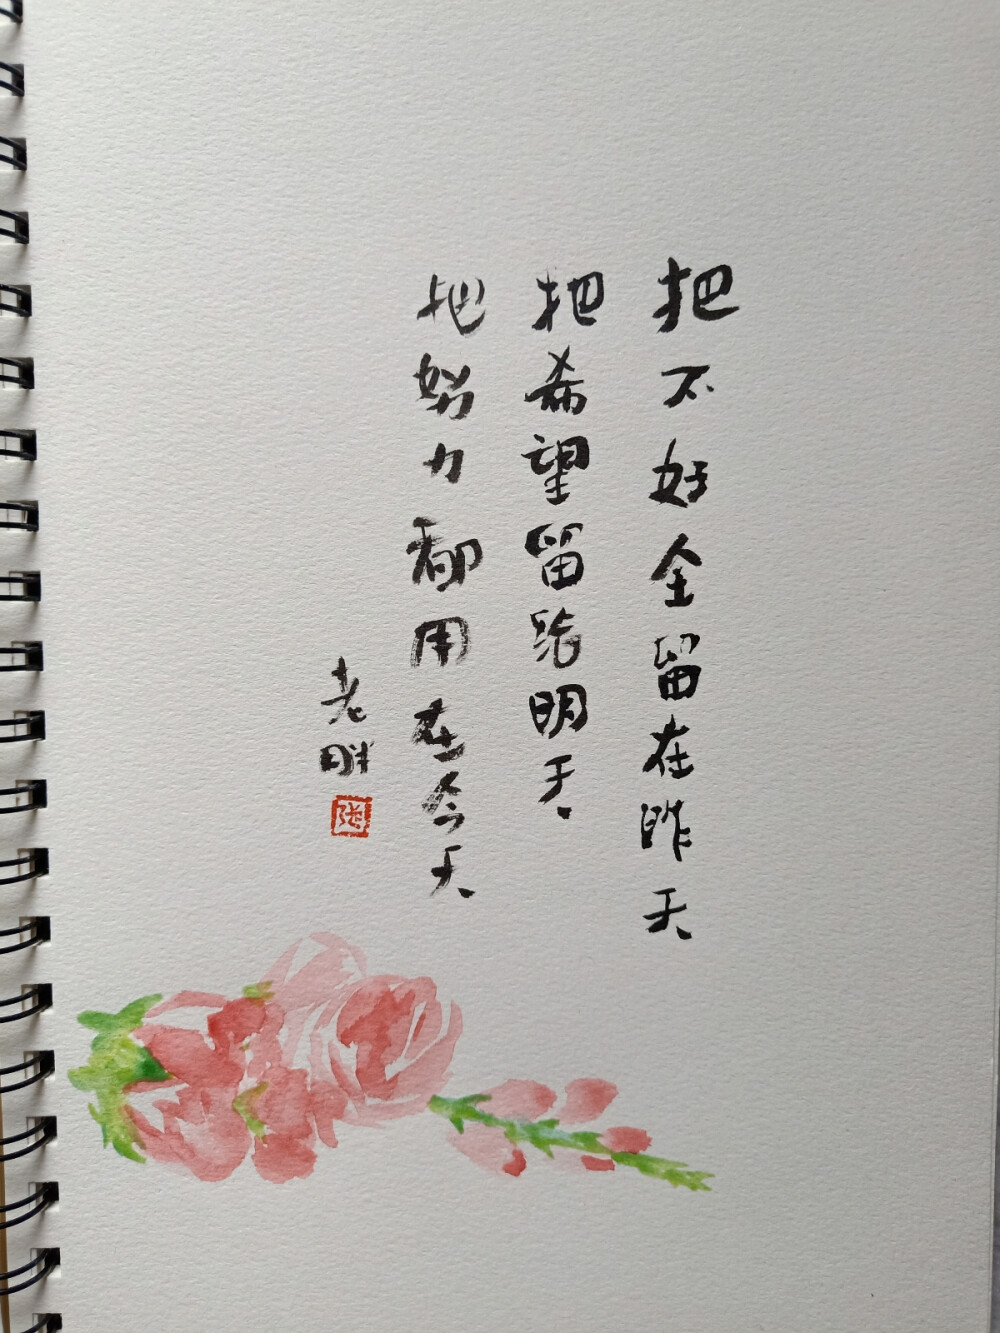 把不好全留在昨天
把希望留给明天
把努力都用在今天
老胖